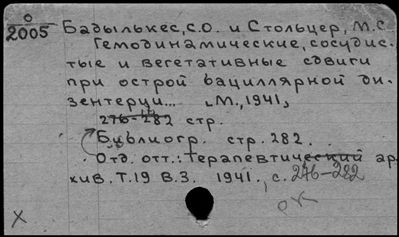 0
2005 Бадылькес, С.О. и Стольцер, М.С
Гемодинамические, сосудис-
тые и вегетативные сдвиги
при острой бациллярной ди-
зентерии... М., 1941,
276-282 стр.
Библиогр. стр. 282.
Отд. отт.: Терапевтический ар
хив. Т.19 В.3. 1941., с. 276-282
ОК
X